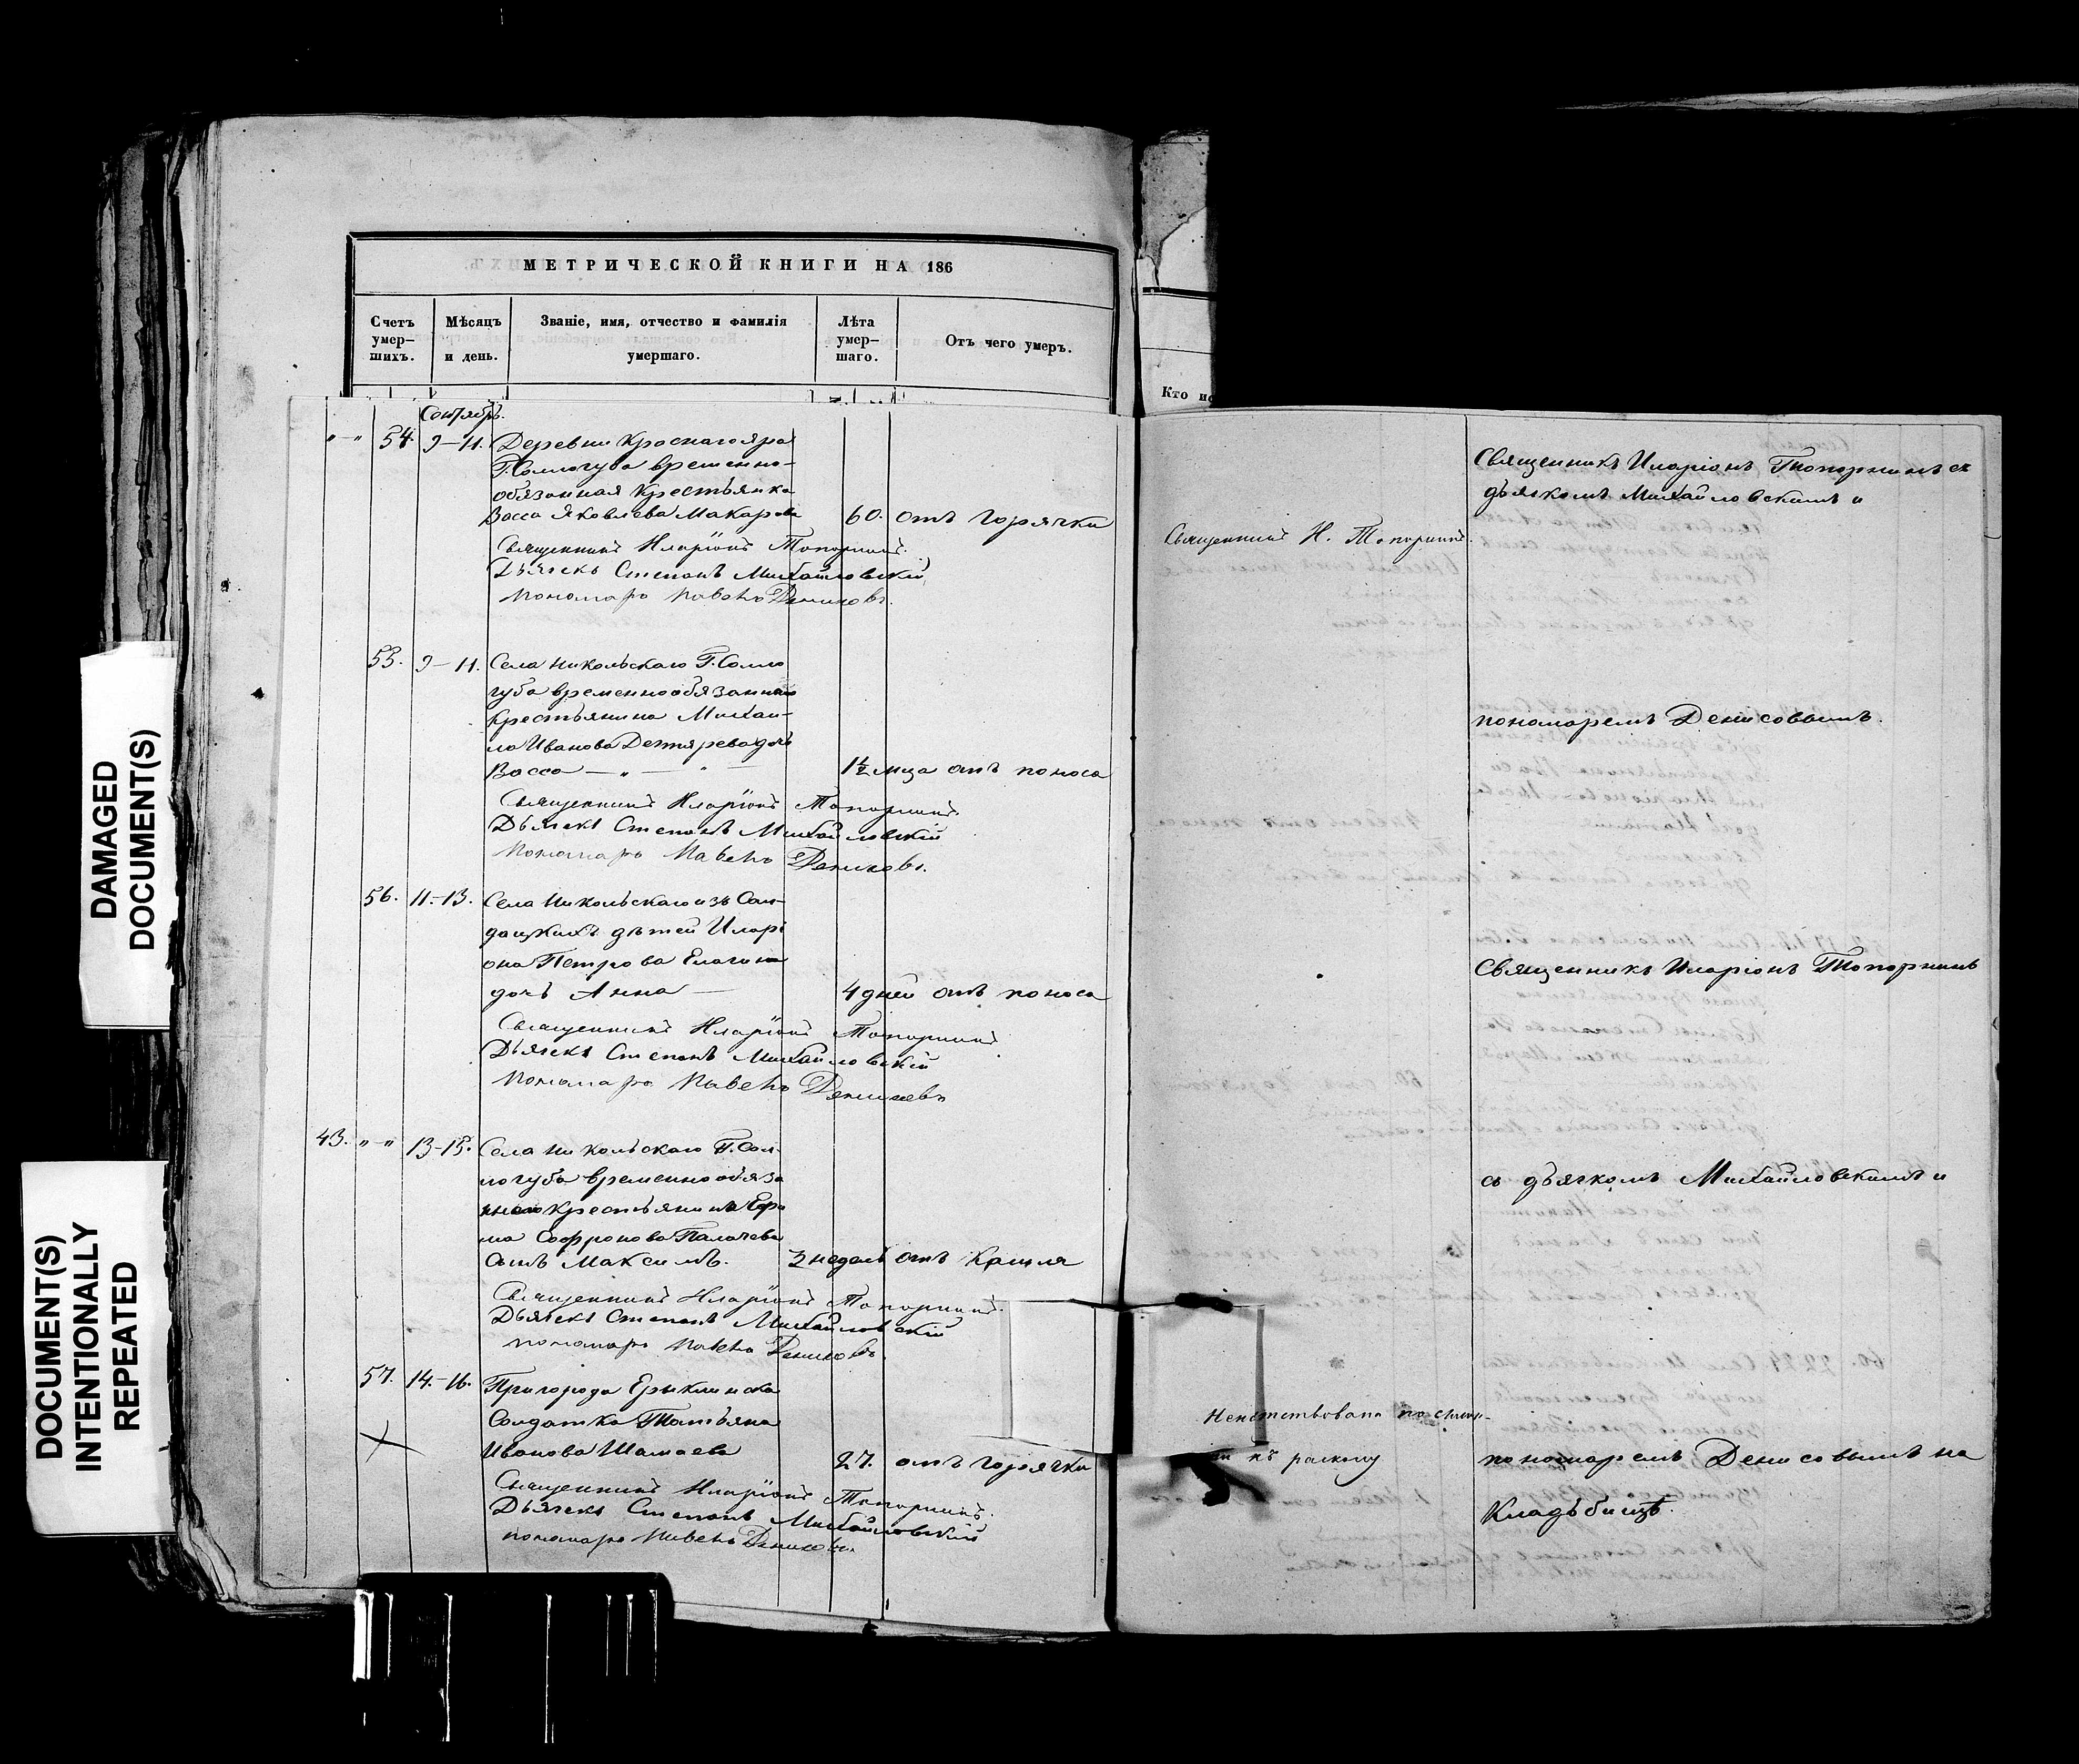 МЕТРИЧЕСКОЙ КНИГИ НА 186
Счетъ умер-шихъ.
Мѣсяцъ и день.
Званіе, имя, отчество и фамилія умершаго.
Лѣта умер-шаго.
Отъ чего умеръ.
Кто ис
Сентябрь.
"-" 54. 9-11. Деревни Краснаго яра
Г. Соллогуба временно-
обязанная крестьянка
Васса Яковлева Макарова 60. отъ горячки
Священникъ Иларіонъ Топорнинъ.
Дьячекъ Степанъ Михайловскій
Пономарь Павелъ Денисовъ.
55. 9-11. Села Никольскаго Г. Солло
губа временнообязаннаго
крестьянина Михаи-
ла Иванова Дегтярева дочь
Васса — " — " — 1½ мца отъ поноса
Священникъ Иларіонъ Топорнинъ.
Дьячекъ Степанъ Михайловскій
Пономарь Павелъ Денисовъ.
56. 11-13. Села Никольскаго изъ Сол-
датскихъ дѣтей Иларі
она Петрова Елагина
дочь Анна — 4 дней отъ поноса
Священникъ Иларіонъ Топорнинъ
Дьячекъ Степанъ Михайловскій
Пономарь Павелъ Денисовъ
43. "-" 13-15. Села Никольскаго Г. Сол-
логуба временнообяза
ннаго крестьянина
Софронова
Сынъ Максимъ. 3 недель отъ Кашля
Священникъ Иларіонъ Топорнинъ.
Дьячекъ Степанъ Михайловскій
пономарь Павелъ Денисовъ.
57. 14.-16. Пригорода Ерыклинска
Солдатка Татьяна
Иванова Шамаева 27. отъ горячки
Священникъ Иларіонъ Топорнинъ.
Дьячекъ Степанъ Михайловскій
пономарь Павелъ Денисовъ.
Священникъ И. Топорнинъ.
къ расколу
Священникъ Иларіонъ Топорнинъ съ
дьячкомъ Михайловскимъ и
пономаремъ Денисовымъ.
Священникъ Иларіонъ Топорнинъ
съ дьячкомъ Михайловскимъ и
пономаремъ Денисовымъ на
Кладъбищѣ.
DAMAGED
DOCUMENT(S)
DOCUMENT(S)
INTENTIONALLY
REPEATED